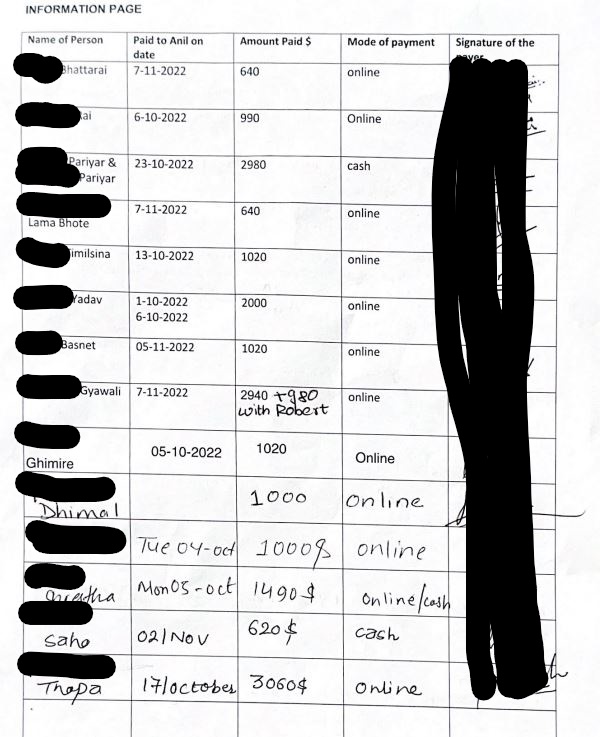 INFORMATION PAGE
Name of Person Paid to Anil on Amount Paid $ Mode of payment Signature of the
date payer
Bhattarai 7-11-2022 640 online
ai 6-10-2022 990 Online
Pariyar & 23-10-2022 2980 cash
Pariyar
7-11-2022 640 online
Lama Bhote
imilsina 13-10-2022 1020 online
Yadav 1-10-2022 2000 online
6-10-2022
Basnet 05-11-2022 1020 online
Gyawali 7-11-2022 2940 +980 online
with Robert
05-10-2022 1020 Online
Ghimire
1000 online
Dhimal
Tue 04-oct 1000$ online
Mon 03-oct 1490$ online/cash
Saho 02/Nov 620$ cash
Thapa 17/october 3060$ online